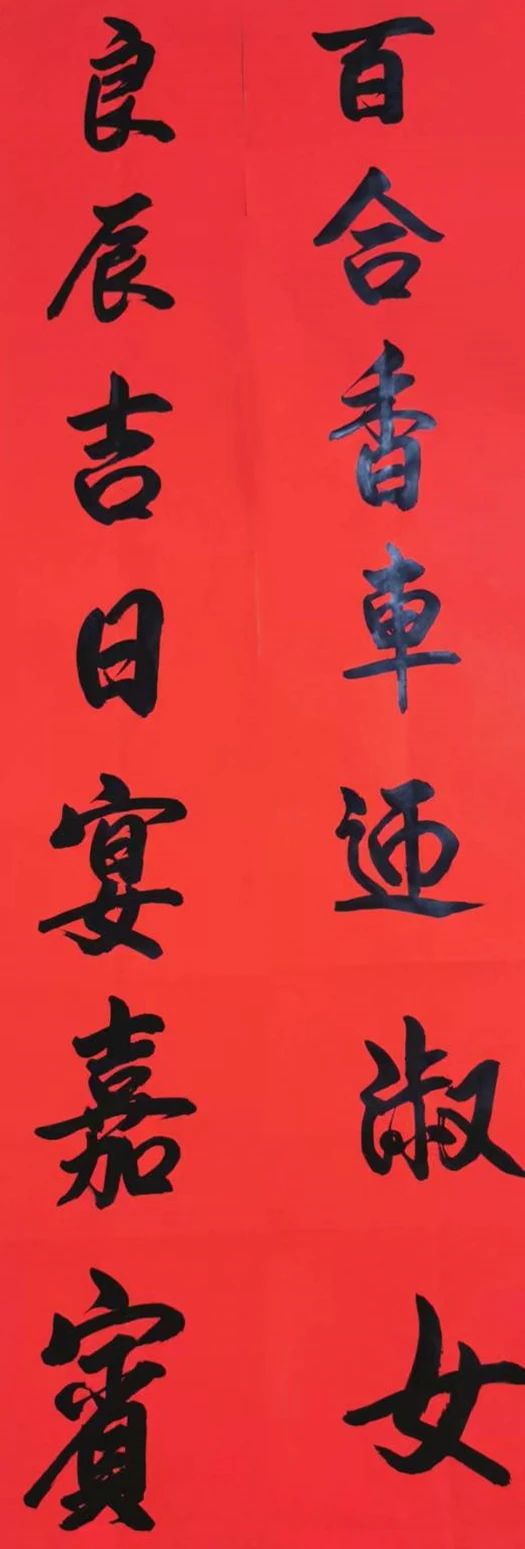 百合香車迎淑女
良辰吉日宴嘉賓